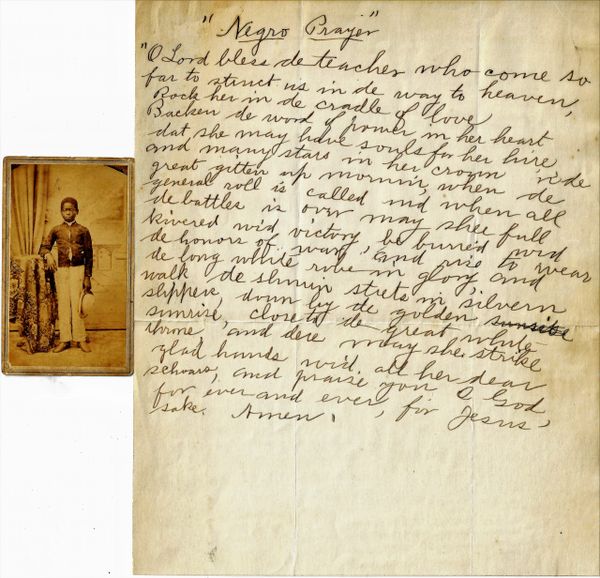 "Negro Prayer"
"O Lord bless de teacher who come so
far to struct us in de way to heaven,
Rock her in de cradle of love
Backen de word of power in her heart
dat she may have souls for her hire
and many stars in her crown in de
great gitten up mornin, when de
general roll is called and when all
de battles is over may shee full
kivered wid victory, be burried wid
de honors of war, and rise to wear
de long white robe in glory and
walk de shinin streets in silvern
slippers, down by de golden sunsite
sunrise, close to de great white
throne and dere may she strike
glad hands wid all her dear
scholars, and praise you O God
for ever and ever, for Jesus,
sake. Amen.